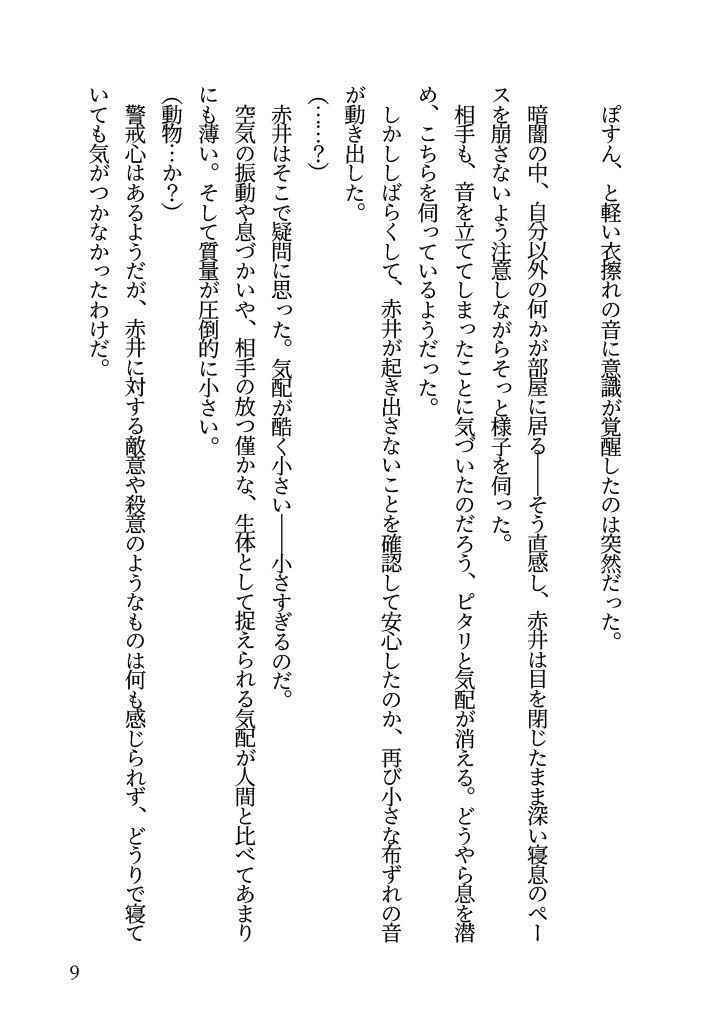 ぽすん、と軽い衣擦れの音に意識が覚醒したのは突然だった。
暗闇の中、自分以外の何かが部屋に居る――そう直感し、赤井は目を閉じたまま深い寝息のペー
スを崩さないよう注意しながらそっと様子を伺った。
相手も、音を立ててしまったことに気づいたのだろう、ピタリと気配が消える。どうやら息を潜
め、こちらを伺っているようだった。
しかししばらくして、赤井が起き出さないことを確認して安心したのか、再び小さな布ずれの音
が動き出した。
(……?)
赤井はそこで疑問に思った。気配が酷く小さい――小さすぎるのだ。
空気の振動や息づかいや、相手の放つ僅かな、生体として捉えられる気配が人間と比べてあまり
にも薄い。そして質量が圧倒的に小さい。
(動物…か?)
警戒心はあるようだが、赤井に対する敵意や殺意のようなものは何も感じられず、どうりで寝て
いても気がつかなかったわけだ。
9